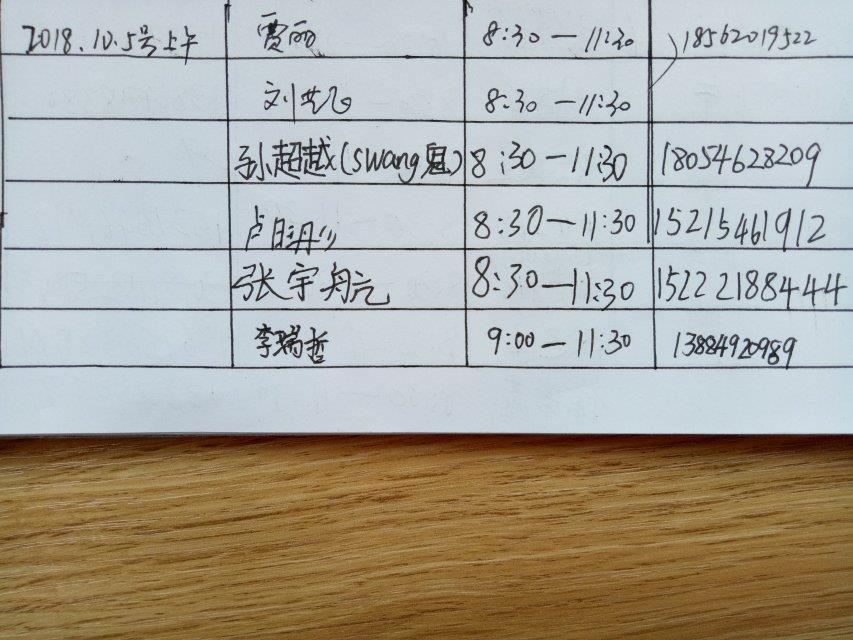 2018.10.5号上午 贾丽 8:30—11:30 18562019522
刘 8:30—11:30
孙超越(swang鬼) 8:30—11:30 18054628209
卢 8:30—11:30 15215461912
张宇航 8:30—11:30 15222188444
李瑞哲 9:00—11:30 13884920989